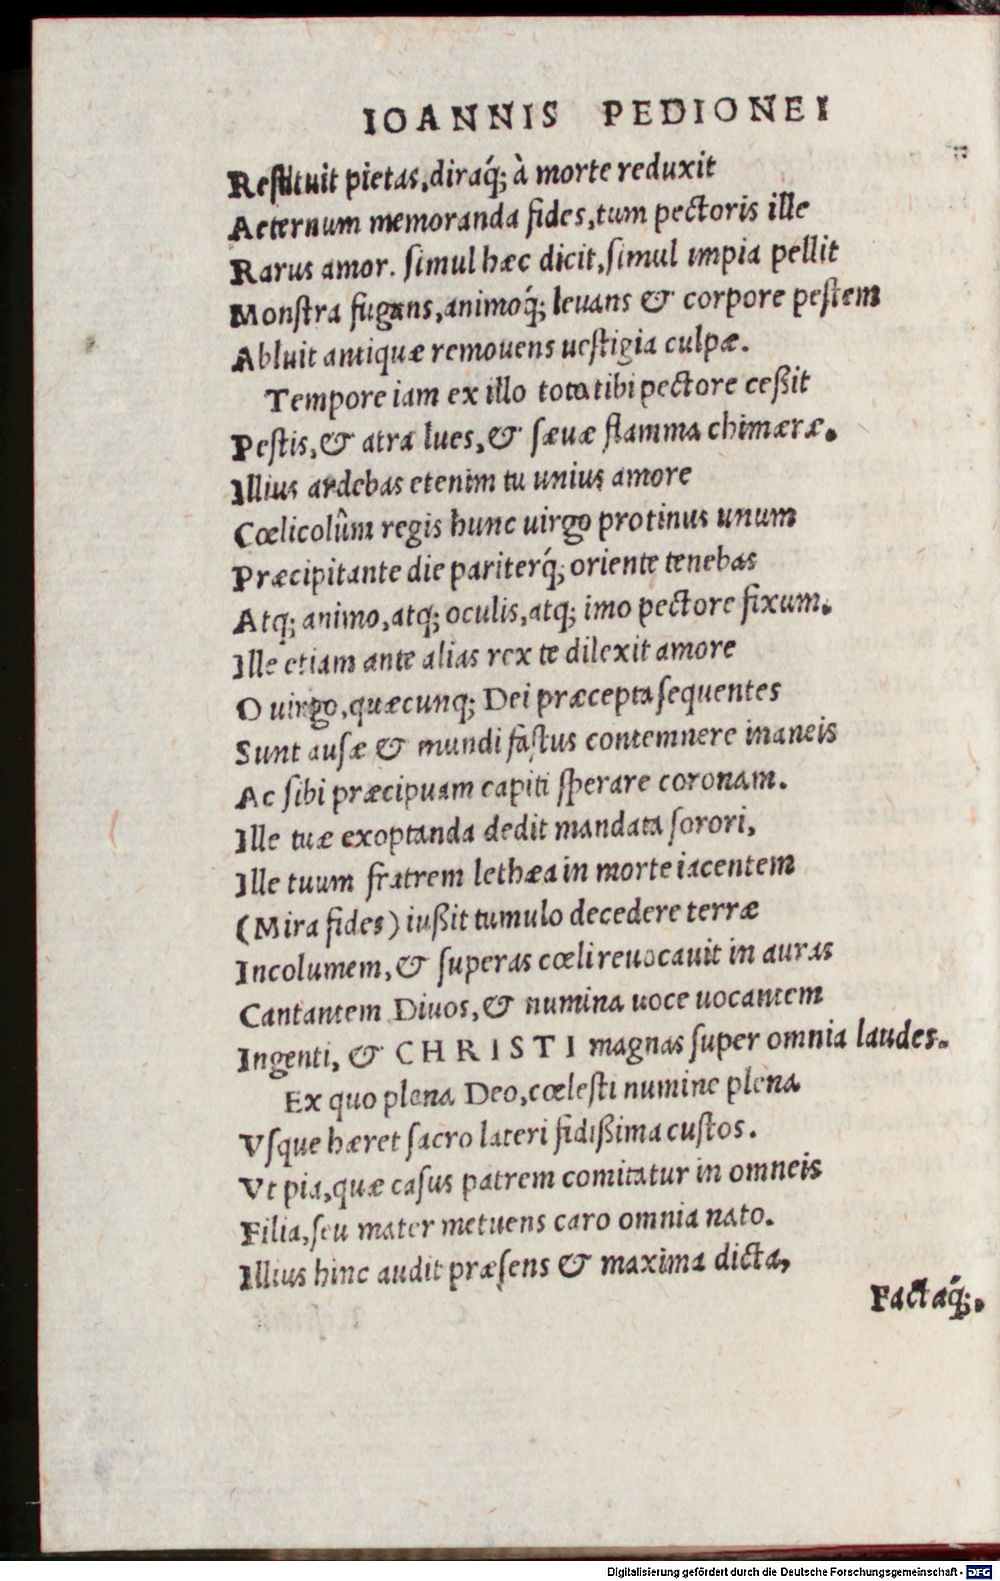 IOANNIS PEDIONEI
Reſtituit pietas, diraq́; à morte reduxit
Aeternum memoranda fides, tum pectoris ille
Rarus amor. ſimul hæc dicit, ſimul impia pellit
Monſtra fugans, animoq́; leuans & corpore peſtem
Abluit antiquæ remouens ueſtigia culpæ.
Tempore iam ex illo tota tibi pectore ceßit
Peſtis, & atra lues, & ſæuæ flamma chimæræ.
Illius ardebas etenim tu unius amore
Cœlicolûm regis hunc uirgo protinus unum
Præcipitante die pariterq́; oriente tenebas
Atq; animo, atq; oculis, atq; imo pectore fixum.
Ille etiam ante alias rex te dilexit amore
O uirgo, quæcunq; Dei præcepta ſequentes
Sunt auſæ & mundi faſtus contemnere inaneis
Ac ſibi præcipuam capiti ſperare coronam.
Ille tuæ exoptanda dedit mandata ſorori,
Ille tuum fratrem lethæa in morte iacentem
(Mira fides) iußit tumulo decedere terræ
Incolumem, & ſuperas cœli reuocauit in auras
Cantantem Diuos, & numina uoce uocantem
Ingenti, & CHRISTI magnas ſuper omnia laudes.
Ex quo plena Deo, cœleſti numine plena
Vſque hæret ſacro lateri fidißima cuſtos.
Vt pia, quæ caſus patrem comitatur in omneis
Filia, ſeu mater metuens caro omnia nato.
Illius hinc audit præſens & maxima dicta,
Factaq́;.
Digitalisierung gefördert durch die Deutsche Forschungsgemeinschaft - DFG